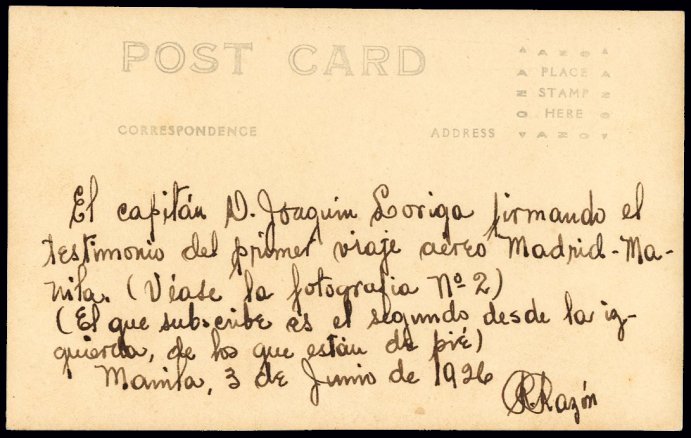 POST CARD
CORRESPONDENCE
ADDRESS
AZO
PLACE
STAMP
HERE
AZO
El capitán D. Joaquin Loriga firmando el
testimonio del primer viaje aéreo Madrid-Ma-
nila. (Véase la fotografia Nº 2)
(El que subscribe es el segundo desde la iz-
quierda, de los que están de pié)
Manila, 3 de Junio de 1926
RRazón